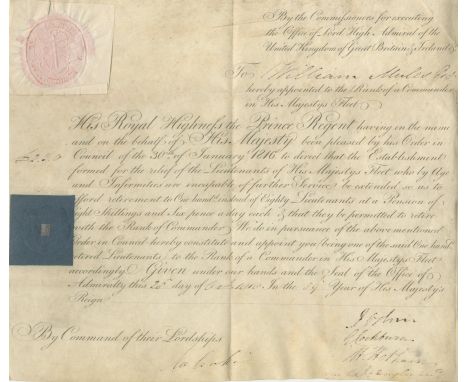 By the Commissioners for executing
the Office of Lord High Admiral of the
United Kingdom of Great Britain & Ireland &c
To William Mules Esq
hereby appointed to the Rank of a Commander
in His Majestys Fleet
His Royal Highness the Prince Regent having in the name
and on the behalf of His Majesty been pleased by his Order in
Council of the 30th of January 1816 to direct that the Establishment
formed for the relief of the Lieutenants of His Majestys Fleet who by Age
and Infirmities are incapable of further Service be extended so as to
afford retirement to One hund. instead of Eighty Lieutenants at a Pension of
Eight Shillings and Six pence a day each & that they be permitted to retire
with the Rank of Commander We do in pursuance of the above mentioned
Order in Council hereby constitute and appoint you (being one of the said One hund.
retired Lieutenants) to the Rank of a Commander in His Majestys Fleet
accordingly Given under our hands and the Seal of the Office of
Admiralty this day of In the Year of His Majesty's
Reign
By Command of their Lordships